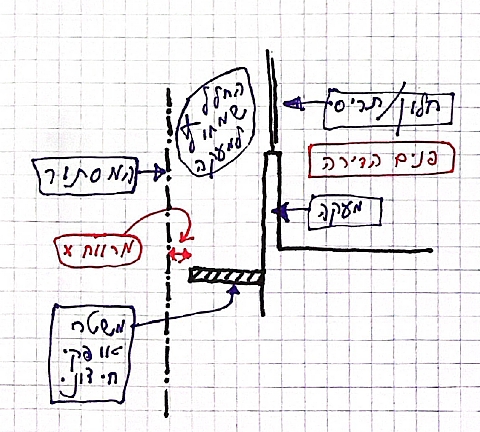 החלל
שמחוץ
למעקה
חלון/תריס
פנים הדירה
המסתור
מעקה
מרווח x
משטח
אופקי
חיצוני